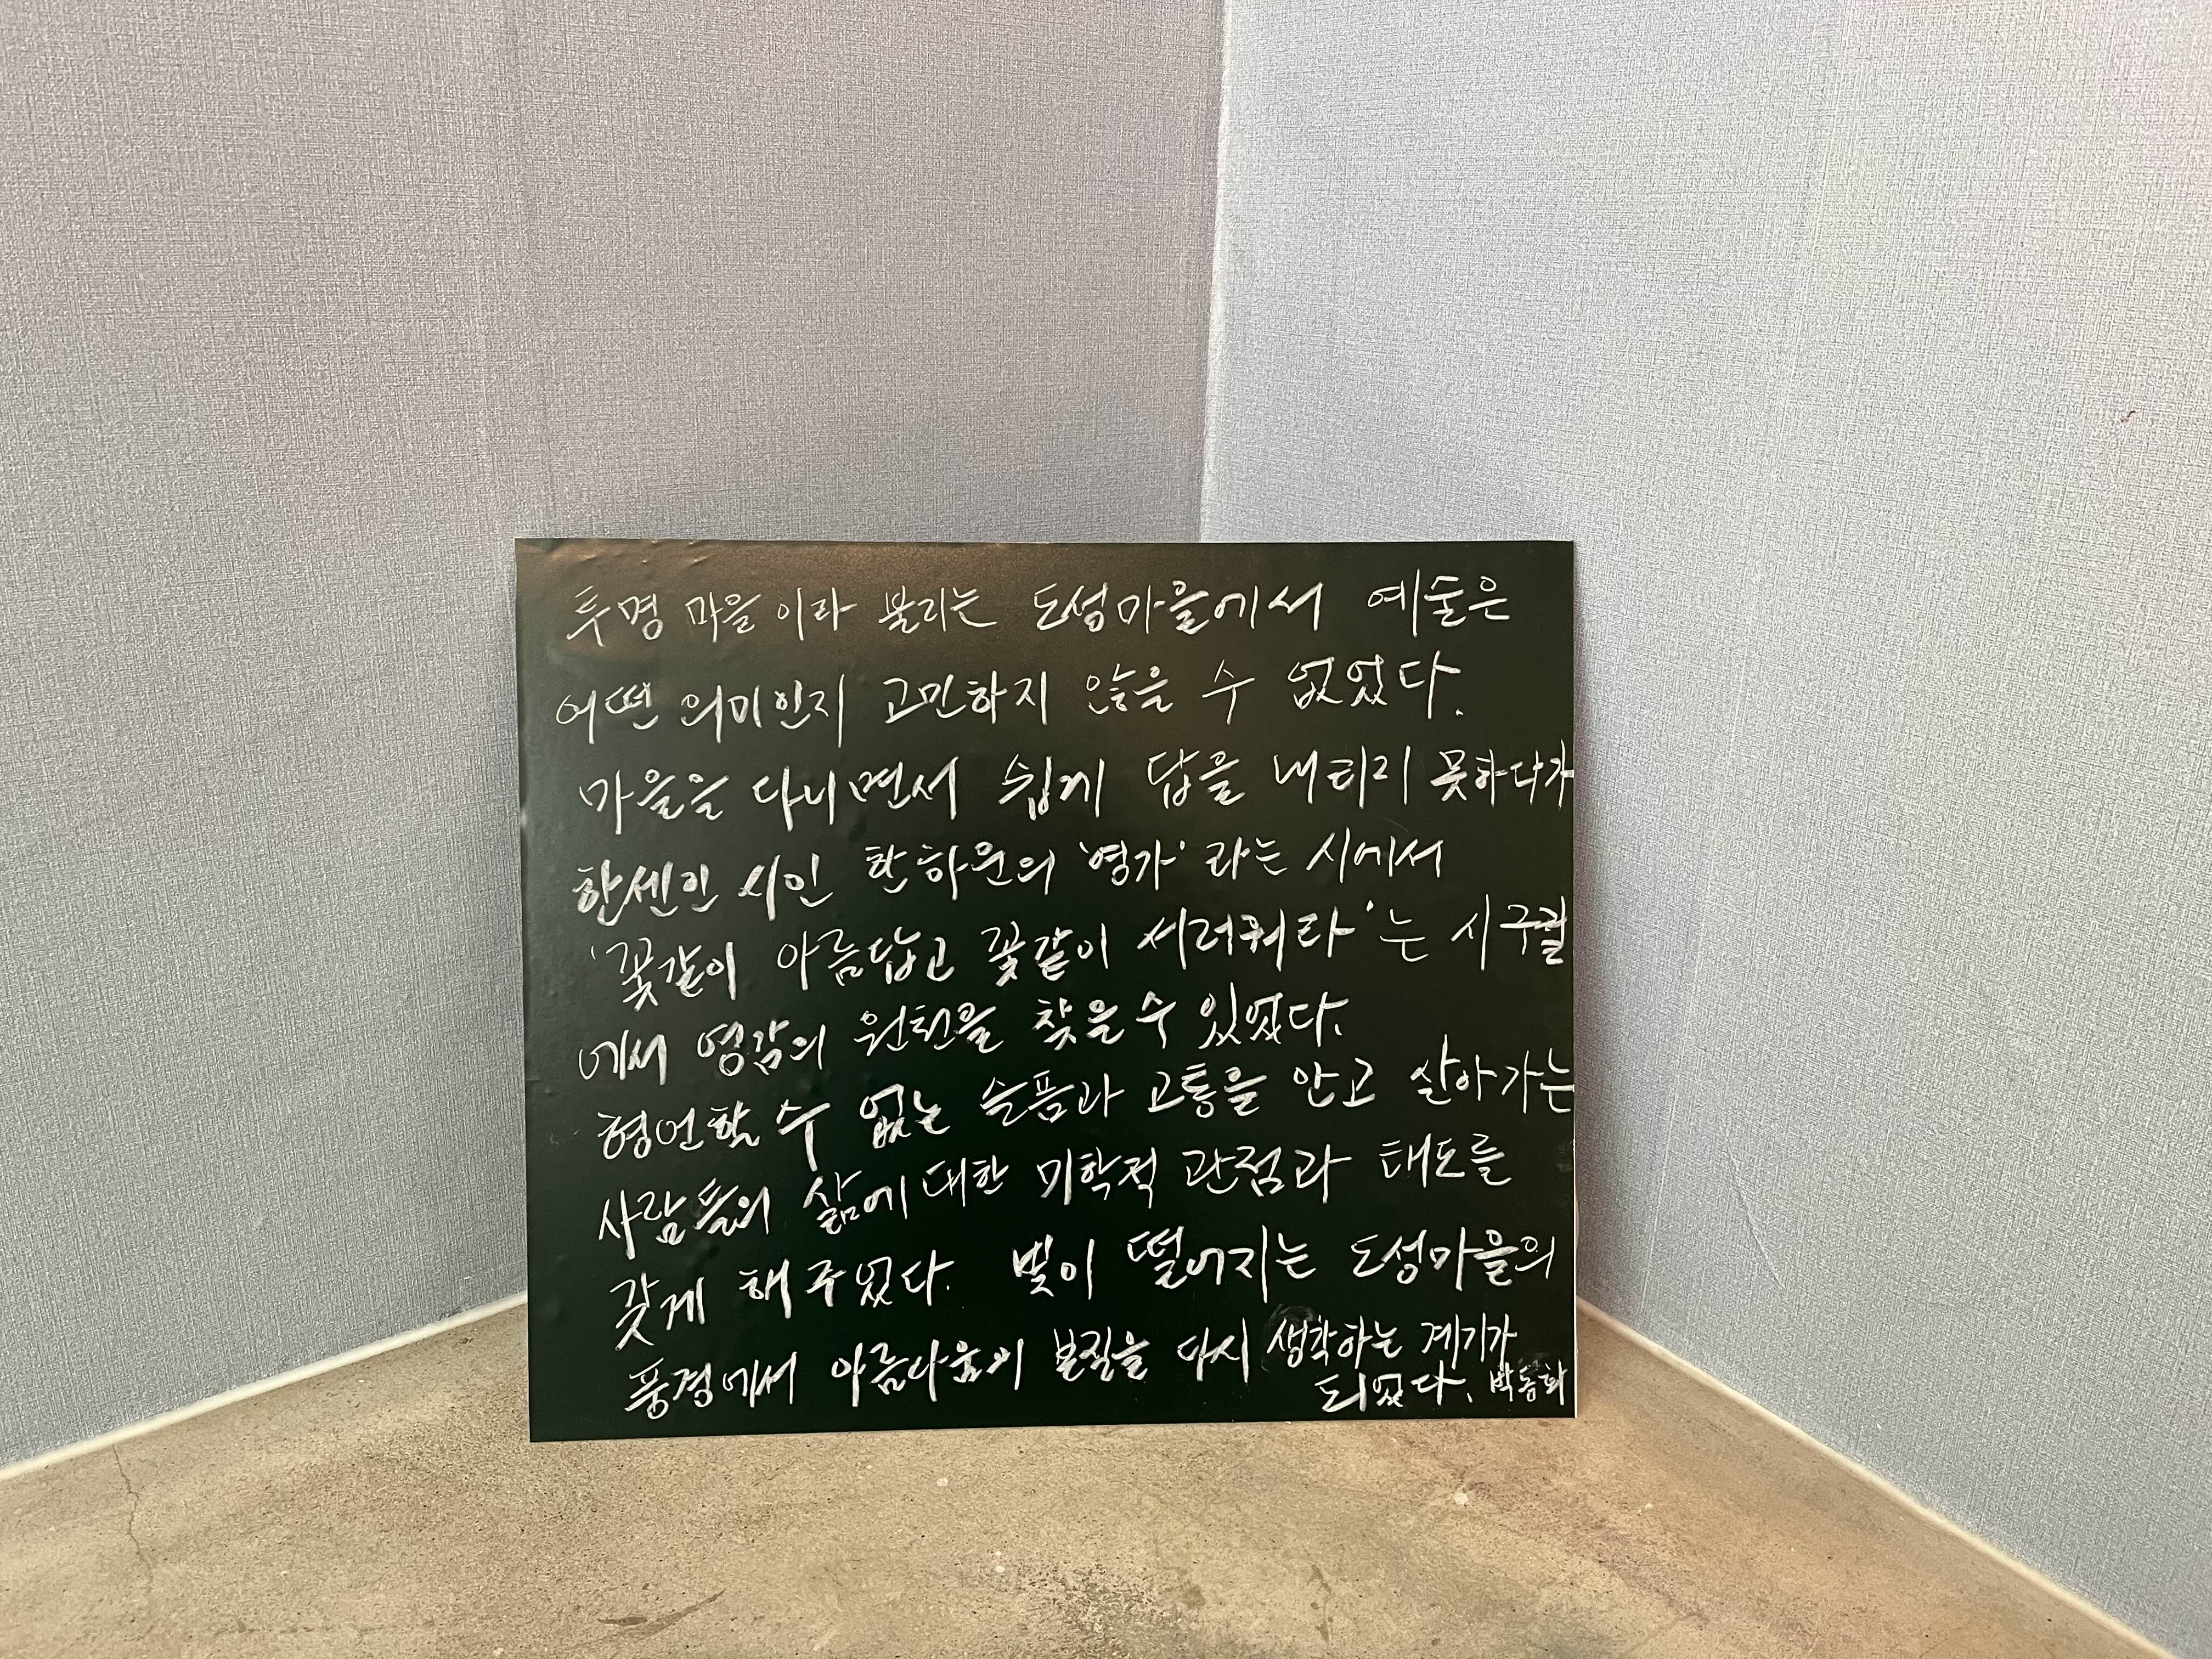 투명 마을이라 불리는 도성마을에서 예술은
어떤 의미인지 고민하지 않을 수 없었다.
마을을 다니면서 쉽게 답을 내리지 못하다가
한센인 시인 한하운의 '영가' 라는 시에서
'꽃같이 아름답고 꽃같이 서러워라' 는 시 구절
에서 영감의 원천을 찾을 수 있었다.
형언할 수 없는 슬픔과 고통을 안고 살아가는
사람들의 삶에 대한 미학적 관점과 태도를
갖게 해주었다. 빛이 떨어지는 도성마을의
풍경에서 아름다움의 본질을 다시 생각하는 계기가
되었다. 박동화